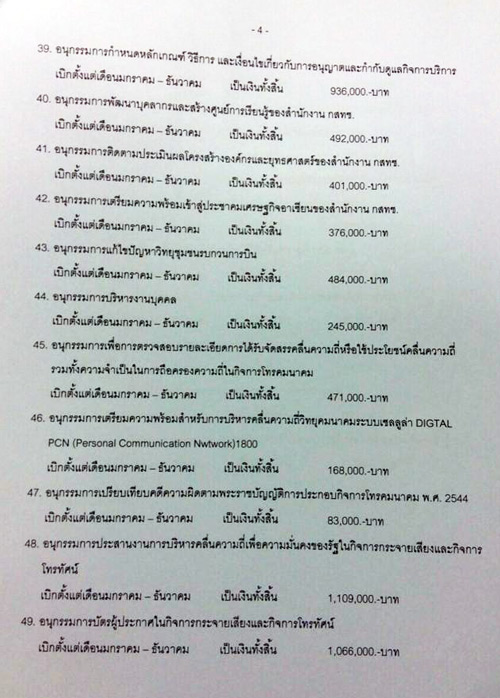 - 4 -
39. อนุกรรมการกำหนดหลักเกณฑ์ วิธีการ และเงื่อนไขเกี่ยวกับการอนุญาตและกำกับดูแลกิจการบริการ
เบิกตั้งแต่เดือนมกราคม – ธันวาคม เป็นเงินทั้งสิ้น 936,000.-บาท
40. อนุกรรมการพัฒนาบุคลากรและสร้างศูนย์การเรียนรู้ของสำนักงาน กสทช.
เบิกตั้งแต่เดือนมกราคม – ธันวาคม เป็นเงินทั้งสิ้น 492,000.-บาท
41. อนุกรรมการติดตามประเมินผลโครงสร้างองค์กรและยุทธศาสตร์ของสำนักงาน กสทช.
เบิกตั้งแต่เดือนมกราคม – ธันวาคม เป็นเงินทั้งสิ้น 401,000.-บาท
42. อนุกรรมการเตรียมความพร้อมเข้าสู่ประชาคมเศรษฐกิจอาเซียนของสำนักงาน กสทช.
เบิกตั้งแต่เดือนมกราคม – ธันวาคม เป็นเงินทั้งสิ้น 376,000.-บาท
43. อนุกรรมการแก้ไขปัญหาวิทยุชุมชนรบกวนการบิน
เบิกตั้งแต่เดือนมกราคม – ธันวาคม เป็นเงินทั้งสิ้น 484,000.-บาท
44. อนุกรรมการบริหารงานบุคคล
เบิกตั้งแต่เดือนมกราคม – ธันวาคม เป็นเงินทั้งสิ้น 245,000.-บาท
45. อนุกรรมการเพื่อการตรวจสอบรายละเอียดการได้รับจัดสรรคลื่นความถี่หรือใช้ประโยชน์คลื่นความถี่
รวมทั้งความจำเป็นในการถือครองความถี่ในกิจการโทรคมนาคม
เบิกตั้งแต่เดือนมกราคม – ธันวาคม เป็นเงินทั้งสิ้น 471,000.-บาท
46. อนุกรรมการเตรียมความพร้อมสำหรับการบริหารคลื่นความถี่วิทยุคมนาคมระบบเซลลูล่า DIGTAL
PCN (Personal Communication Nwtwork)1800
เบิกตั้งแต่เดือนมกราคม – ธันวาคม เป็นเงินทั้งสิ้น 168,000.-บาท
47. อนุกรรมการเปรียบเทียบคดีความผิดตามพระราชบัญญัติการประกอบกิจการโทรคมนาคม พ.ศ. 2544
เบิกตั้งแต่เดือนมกราคม – ธันวาคม เป็นเงินทั้งสิ้น 83,000.-บาท
48. อนุกรรมการประสานงานการบริหารคลื่นความถี่เพื่อความมั่นคงของรัฐในกิจการกระจายเสียงและกิจการ
โทรทัศน์
เบิกตั้งแต่เดือนมกราคม – ธันวาคม เป็นเงินทั้งสิ้น 1,109,000.-บาท
49. อนุกรรมการบัตรผู้ประกาศในกิจการกระจายเสียงและกิจการโทรทัศน์
เบิกตั้งแต่เดือนมกราคม – ธันวาคม เป็นเงินทั้งสิ้น 1,066,000.-บาท